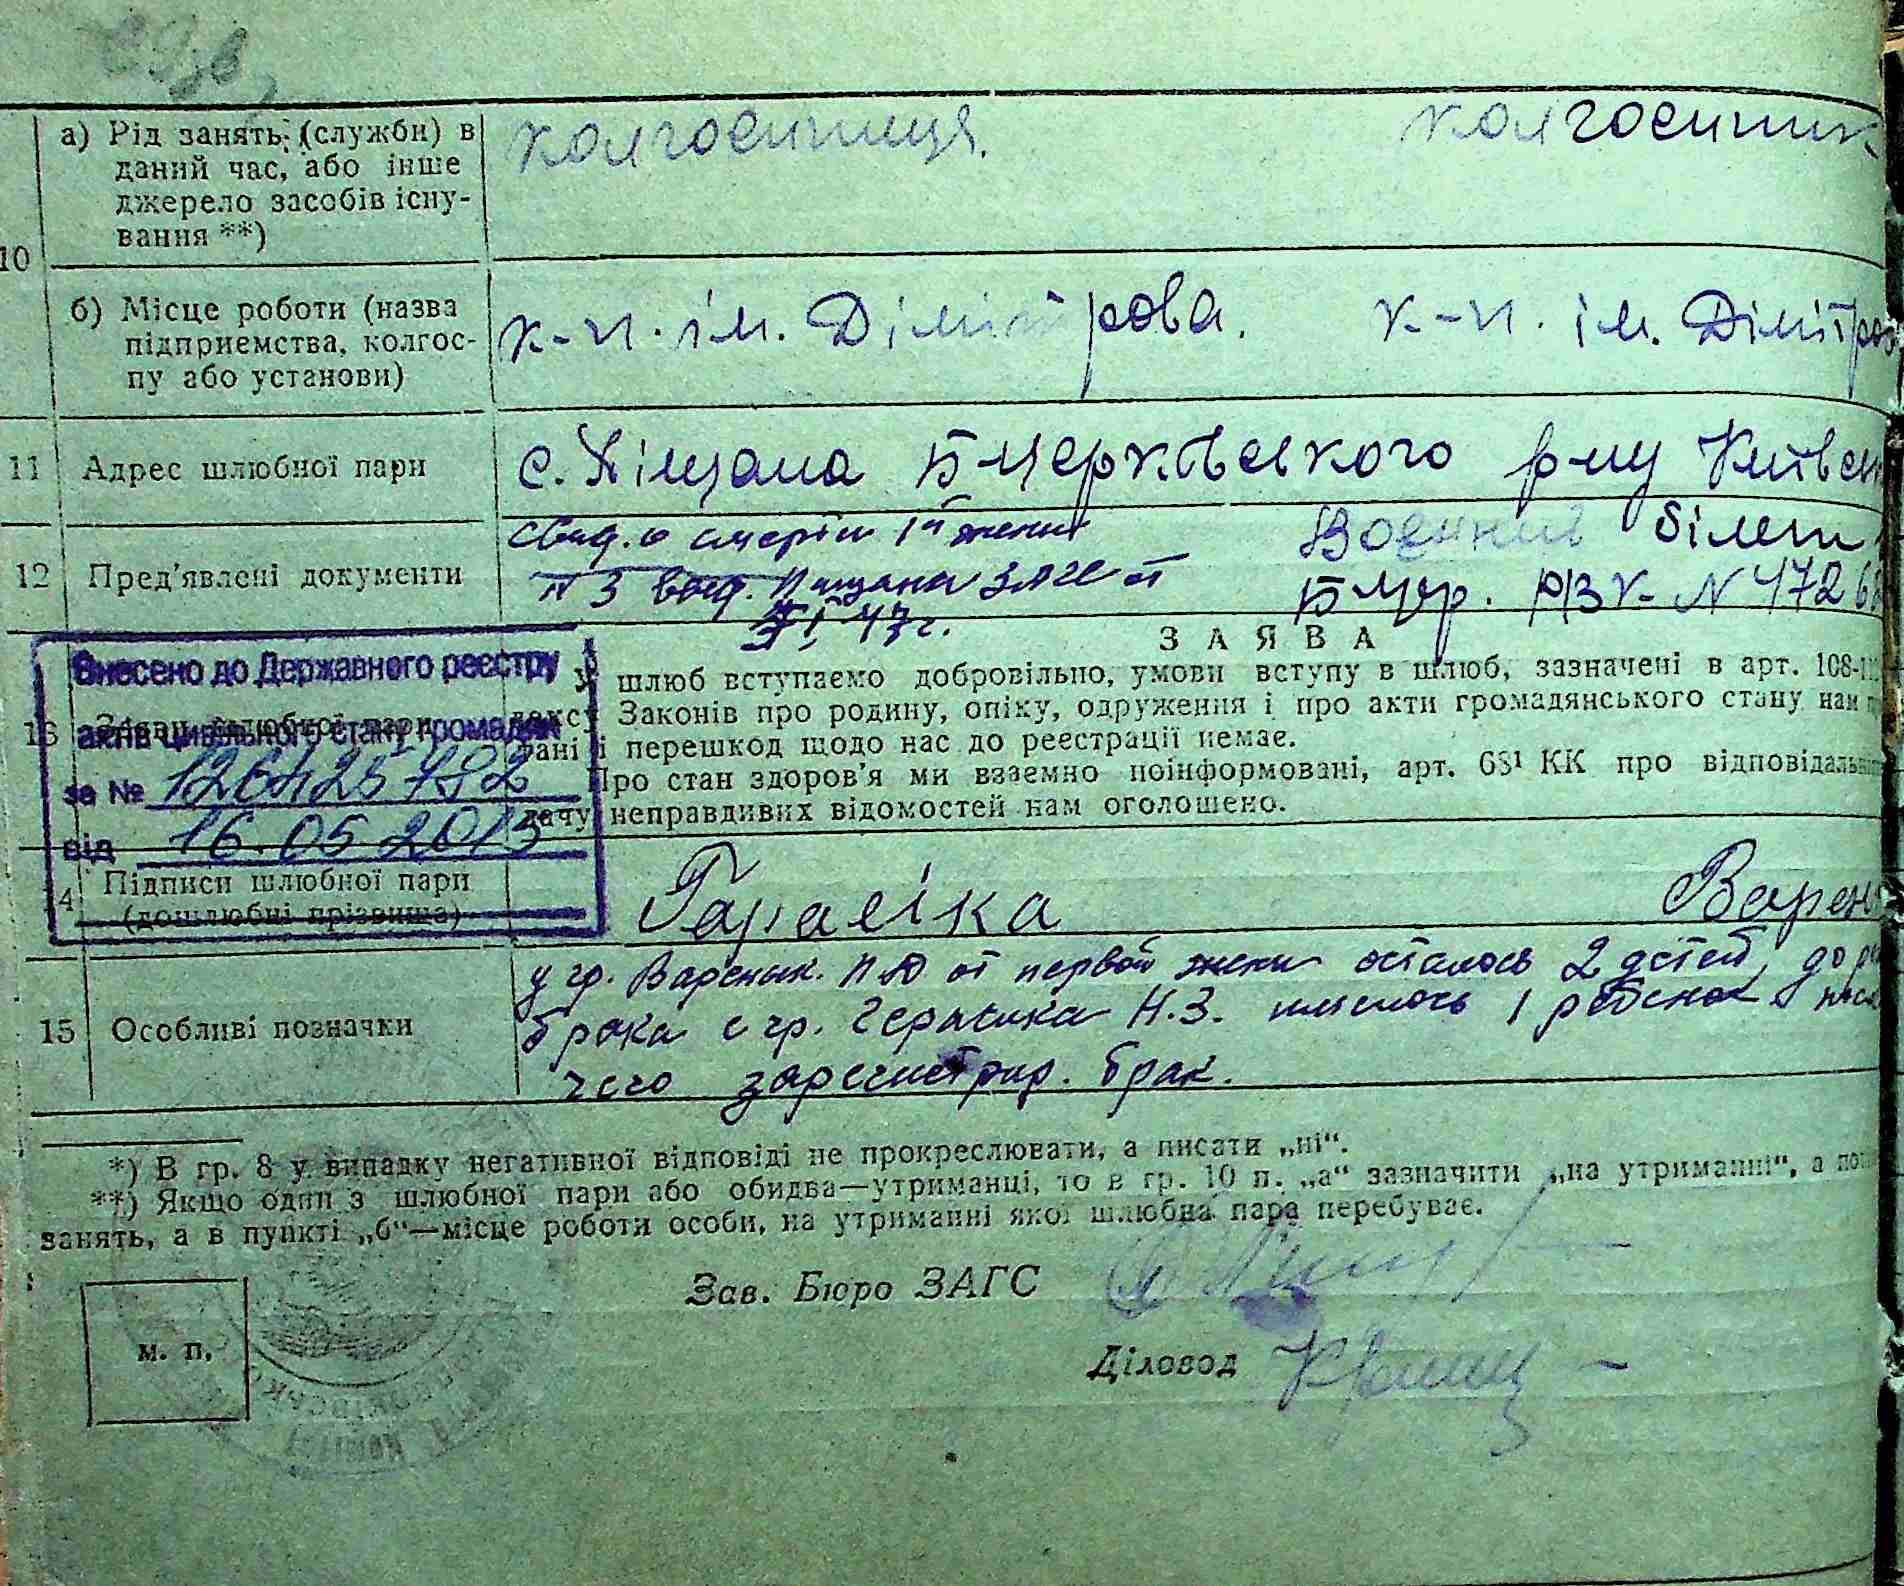 10
а) Рід занять (служби) в
даний час, або інше
джерело засобів існу-
вання **)
колгоспниця.
колгоспник
б) Місце роботи (назва
підприємства, колгос-
пу або установи)
к-п. ім. Дімітрова.
к-п. ім. Дімітров
11
Адрес шлюбної пари
с. Піщана БЦерківського р-ну Київськ
12
Пред'явлені документи
свид. о смерти 1й жены
N 3 выд. Пищана ЗАГС от
47 г.
Воєнний білет
БЦер. РВК N 4726
Внесено до Державного реєстру
актів цивільного стану громадян
за № 126425782
від 16.05 2013
13
Заява шлюбної пари
ЗАЯВА
У шлюб вступаємо добровільно, умови вступу в шлюб, зазначені в арт. 108-
дексу Законів про родину, опіку, одруження і про акти громадянського стану нам
дані і перешкод щодо нас до реестрації немає.
Про стан здоров'я ми взаємно поінформовані, арт. 68¹ КК про відповідальн
дачу неправдивих відомостей нам оголошено.
14
Підписи шлюбної пари
(дошлюбні прізвища)
Гарасіка
Варен
15
Особливі позначки
у гр. Вареник. П.Ю от первой жены осталось 2 детей, до
брака с гр. Герасика Н.З. имелось 1 ребенок
чего зарегистрир. брак.
*) В гр. 8 у випадку негативної відповіді не прокреслювати, а писати „ні“.
**) Якщо один з шлюбної пари або обидва—утриманці, то в гр. 10 п. „а“ зазначити „на утриманні“, а
занять, а в пункті „б“—місце роботи особи, на утриманні якої шлюбна пара перебуває.
Зав. Бюро ЗАГС
м. п.
Діловод